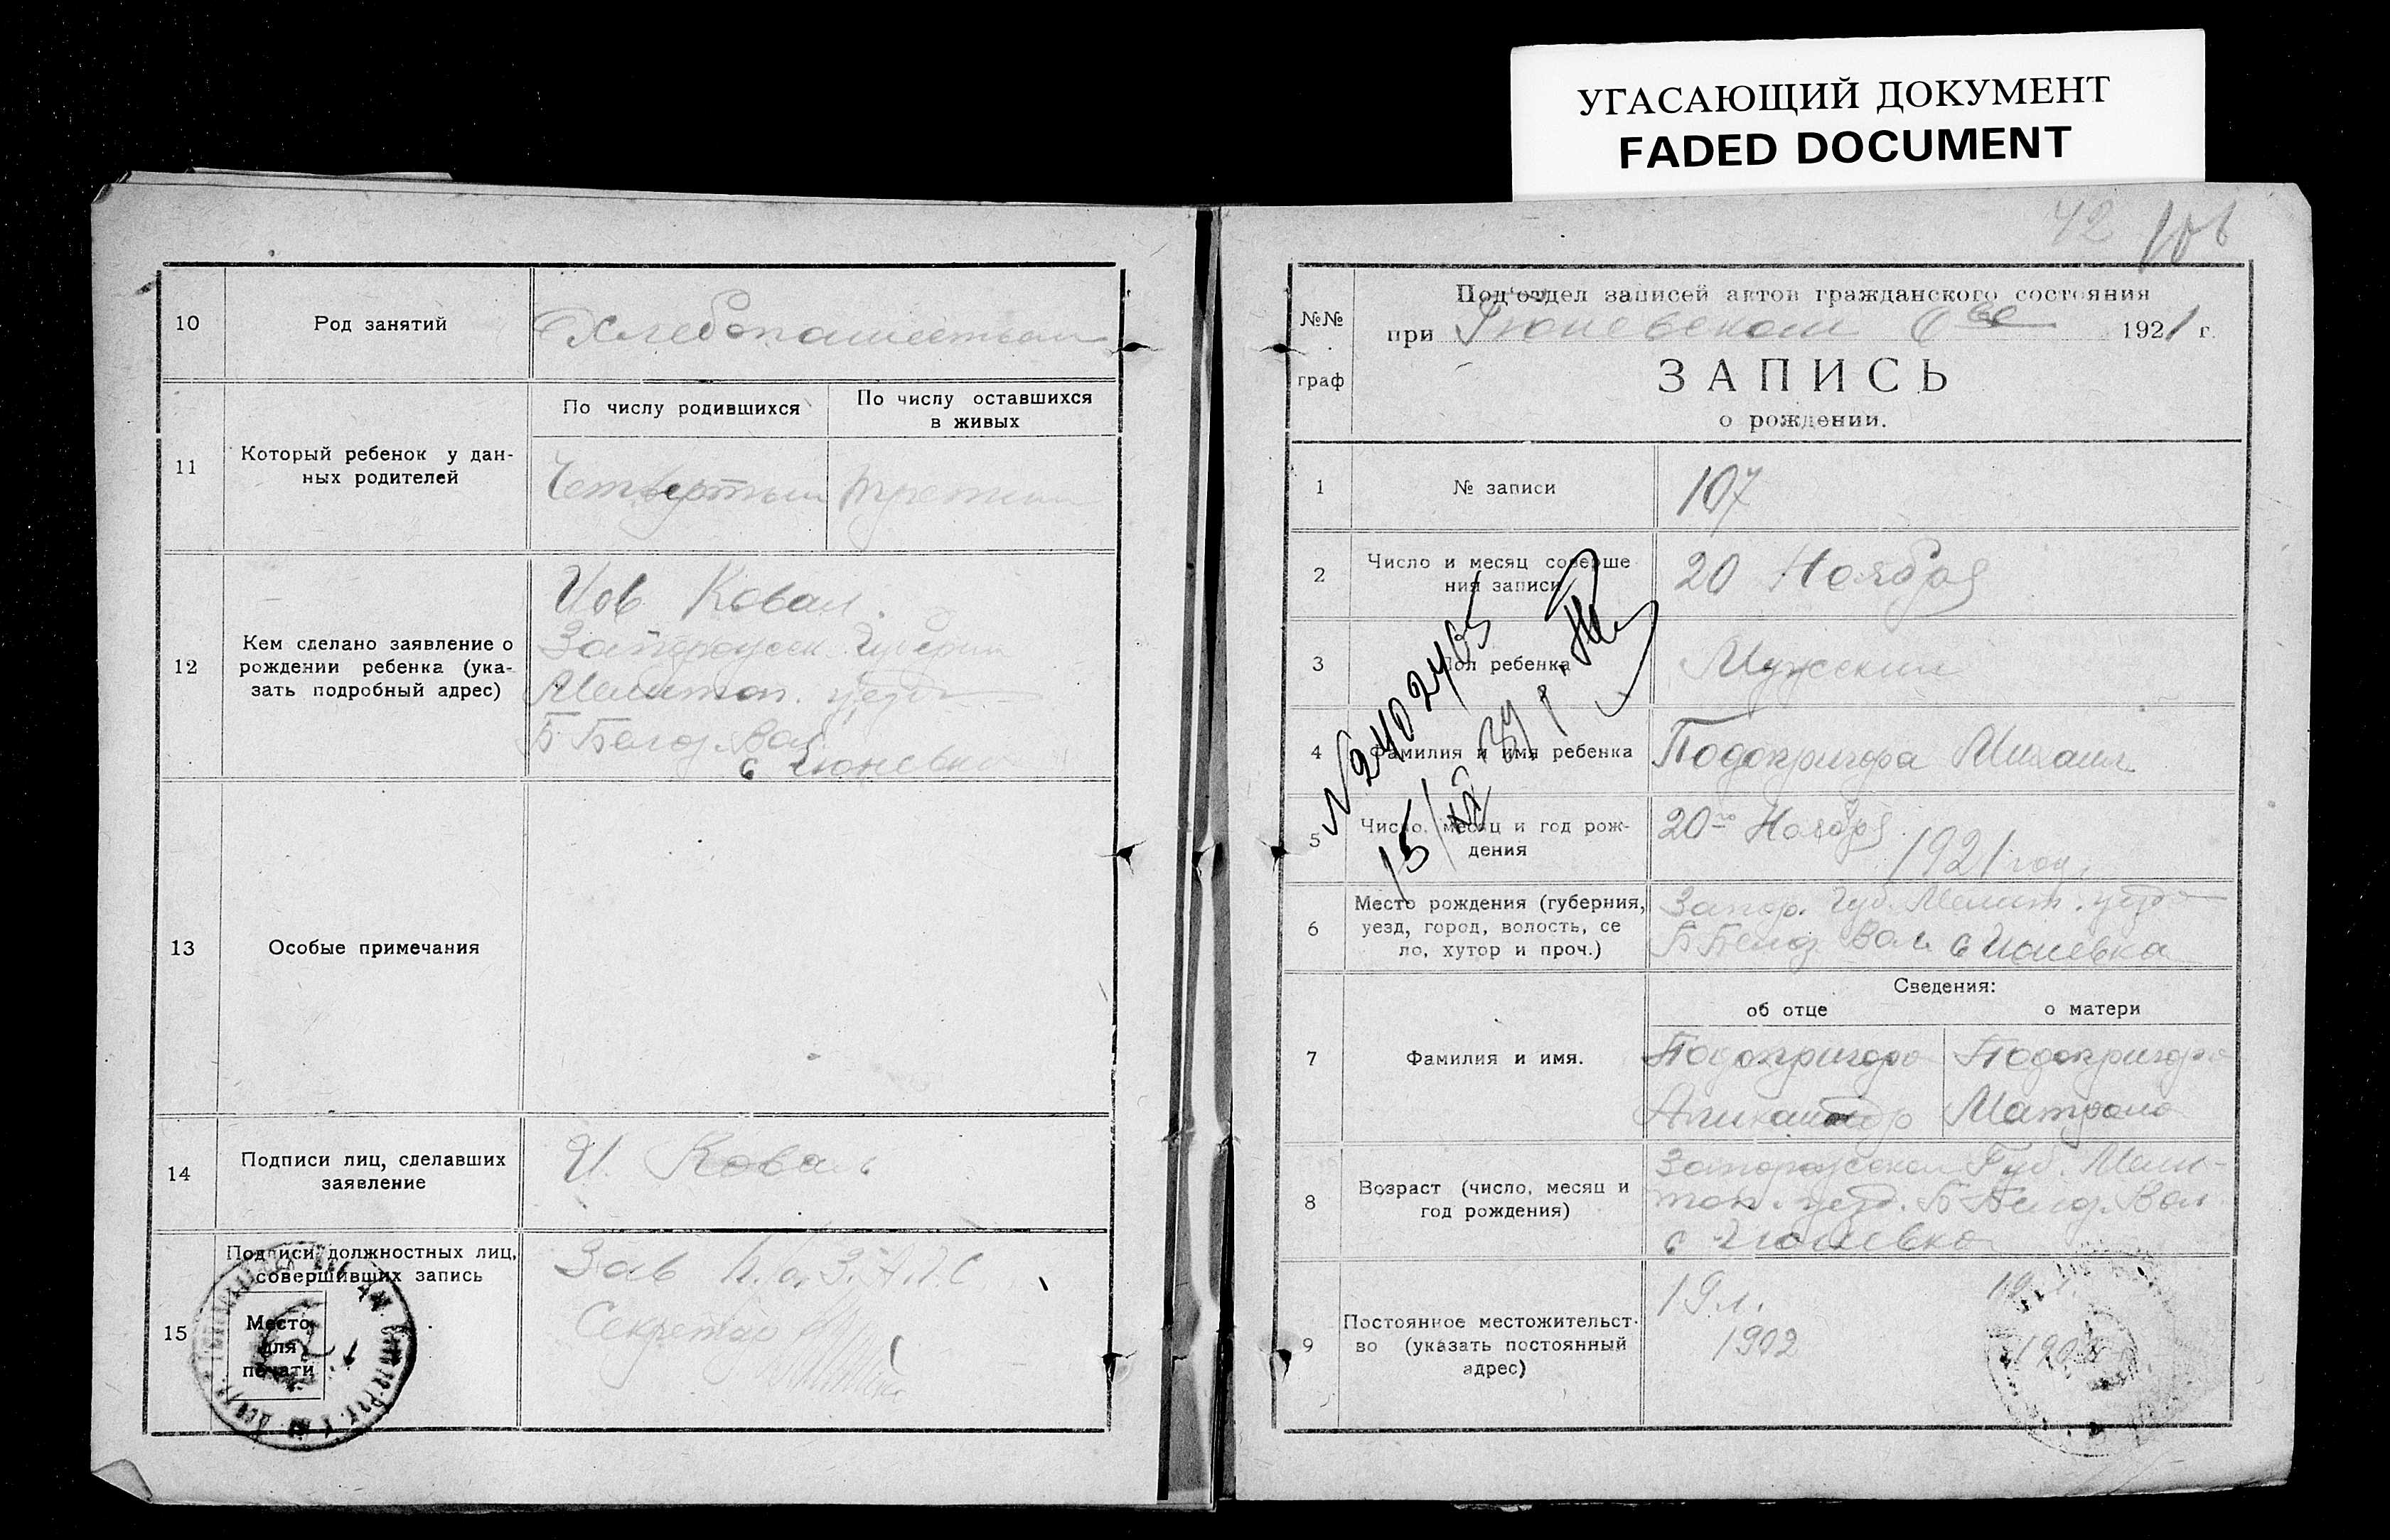 УГАСАЮЩИЙ ДОКУМЕНТ
FADED DOCUMENT
10
Род занятий
Хлебопашеством
11
Который ребенок у дан-
ных родителей
По числу родившихся
По числу оставшихся
в живых
Четвертый
третий
12
Кем сделано заявление о
рождении ребенка (ука-
зать подробный адрес)
Иов Ковал.
Запорожск. Губерни
Мелитоп. уезд
Б Белоз. Вол.
с
13
Особые примечания
14
Подписи лиц, сделавших
заявление
И. Коваль
15
Подписи должностных лиц,
совершивших запись
Место
для
печати
Зав П.О.З.А.Г.С
Секретарь
42
№№
граф
Под'отдел записей актов гражданского состояния
при 1921 г.
ЗАПИСЬ
о рождении.
1
№ записи
107
2
Число и месяц соверше
ния записи
20 Ноября
3
Пол ребенка
Мужский
4
Фамилия и имя ребенка
Подопригора Михаил
5
Число, месяц и год рож-
дения
20го Ноября
1921 год.
6
Место рождения (губерния,
уезд, город, волость, се
ло, хутор и проч.)
Запор. Губ. Мелит. уезд
Б Белоз. Вол. с
Сведения:
об отце
о матери
7
Фамилия и имя.
Подопригора
Подопригора
Матрона
8
Возраст (число, месяц и
год рождения)
Запорожской Губ. Мели-
топ. уезд. Б Белоз. Вол
с
9
Постоянное местожительст-
во (указать постоянный
адрес)
19 л.
1902